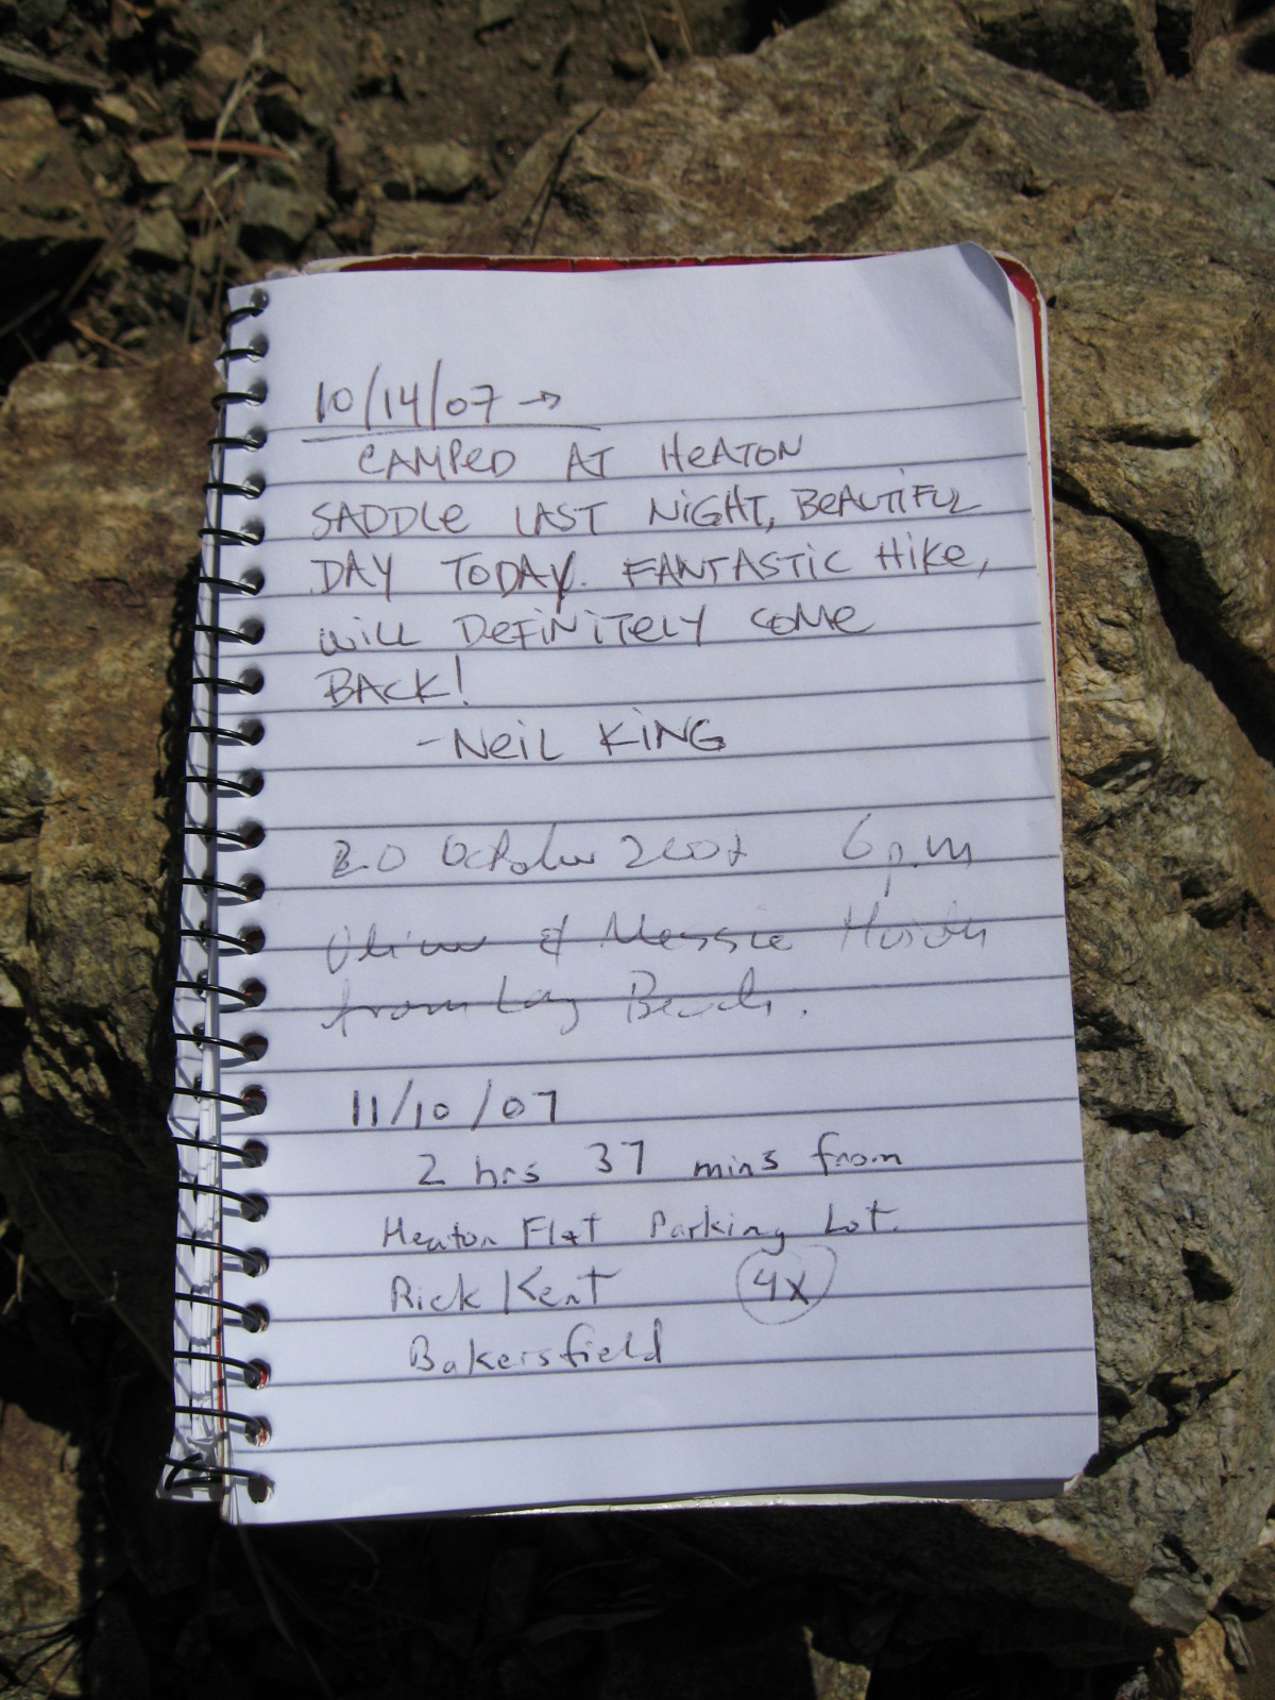 10/14/07 →
CAMPED AT HEATON
SADDLE LAST NIGHT, BEAUTIFUL
DAY TODAY. FANTASTIC HIKE,
WILL DEFINITELY COME
BACK!
- NEIL KING
20 October 2007 6 p.m
& Messie
from Long Beach.
11/10/07
2 hrs 37 mins from
Heaton Flat Parking Lot.
Rick Kent 4x
Bakersfield